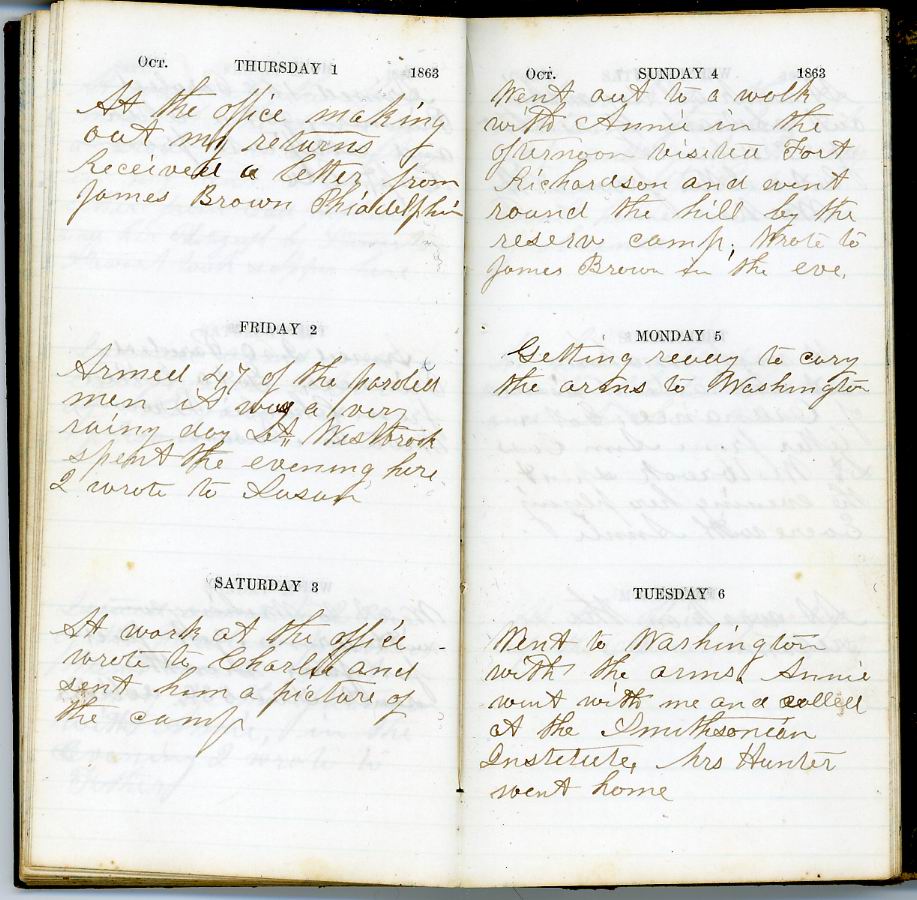 Oct. THURSDAY 1 1863
At the office making
out my returns
Received a letter from
James Brown Phiadelphia
FRIDAY 2
Armed 47 of the paroled
men it was a very
rainy day Lt Westbrook
spent the evening here
I wrote to Susan
SATURDAY 3
At work at the office
wrote to Charlie and
sent him a picture of
the camp
Oct. SUNDAY 4 1863
Went out to a walk
with Annie in the
afternoon visited Fort
Richardson and went
round the hill by the
reserv camp. Wrote to
James Brown in the eve.
MONDAY 5
Getting ready to cary
the arms to Washington
TUESDAY 6
Went to Washington
with the arms. Annie
went with me and called
at the Smithsonian
Institute. Mrs Hunter
went home